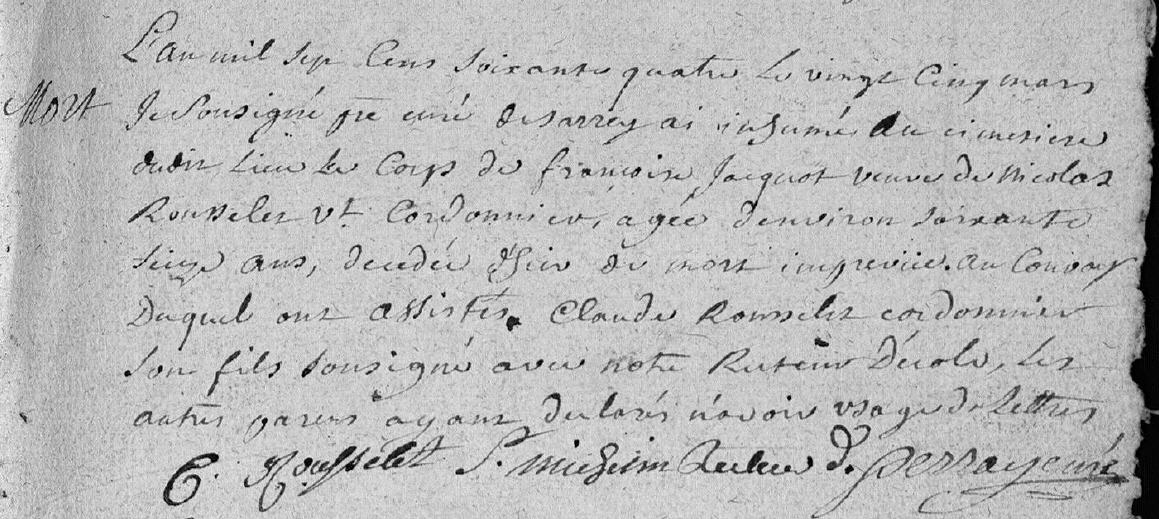 L'an mil sept Cens soixante quatre le vingt Cinq mars
Mort
Je Sousigné ptre curé de sarrey ai inhumé Au cimetiere
dudit Lieu Le Corps de françoise Jacquot veuve de Nicolas
Rousselet vt Cordonnier, agée d'environ soixante
seize ans, decedée d'hier de mort imprevüe. au Convoy
Duquel ont assistés Claude Rousselet cordonnier
son fils sousigné avec notre Recteur D'école, les
autres parens ayant declarés n'avoir usage de Lettres
C. Rousselet